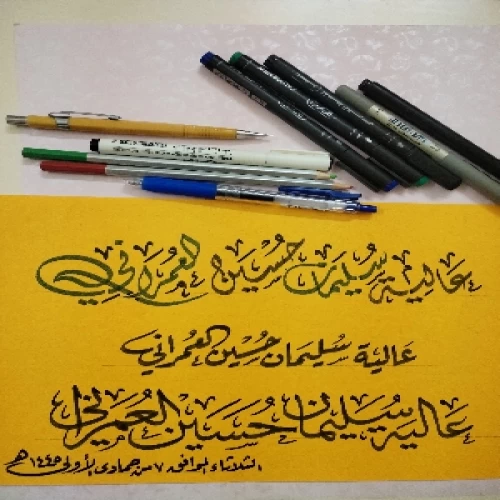 عَالِيَة سُلَيمَان حُسَين العُمَرَاني
عَالِيَة سُلِيمَان حُسِين العُمراني
عَالية سُليمان حُسَين العُمَراني
الثلاثاء الموافق ٧ من جمادى الأولى ١٤٤٥هـ